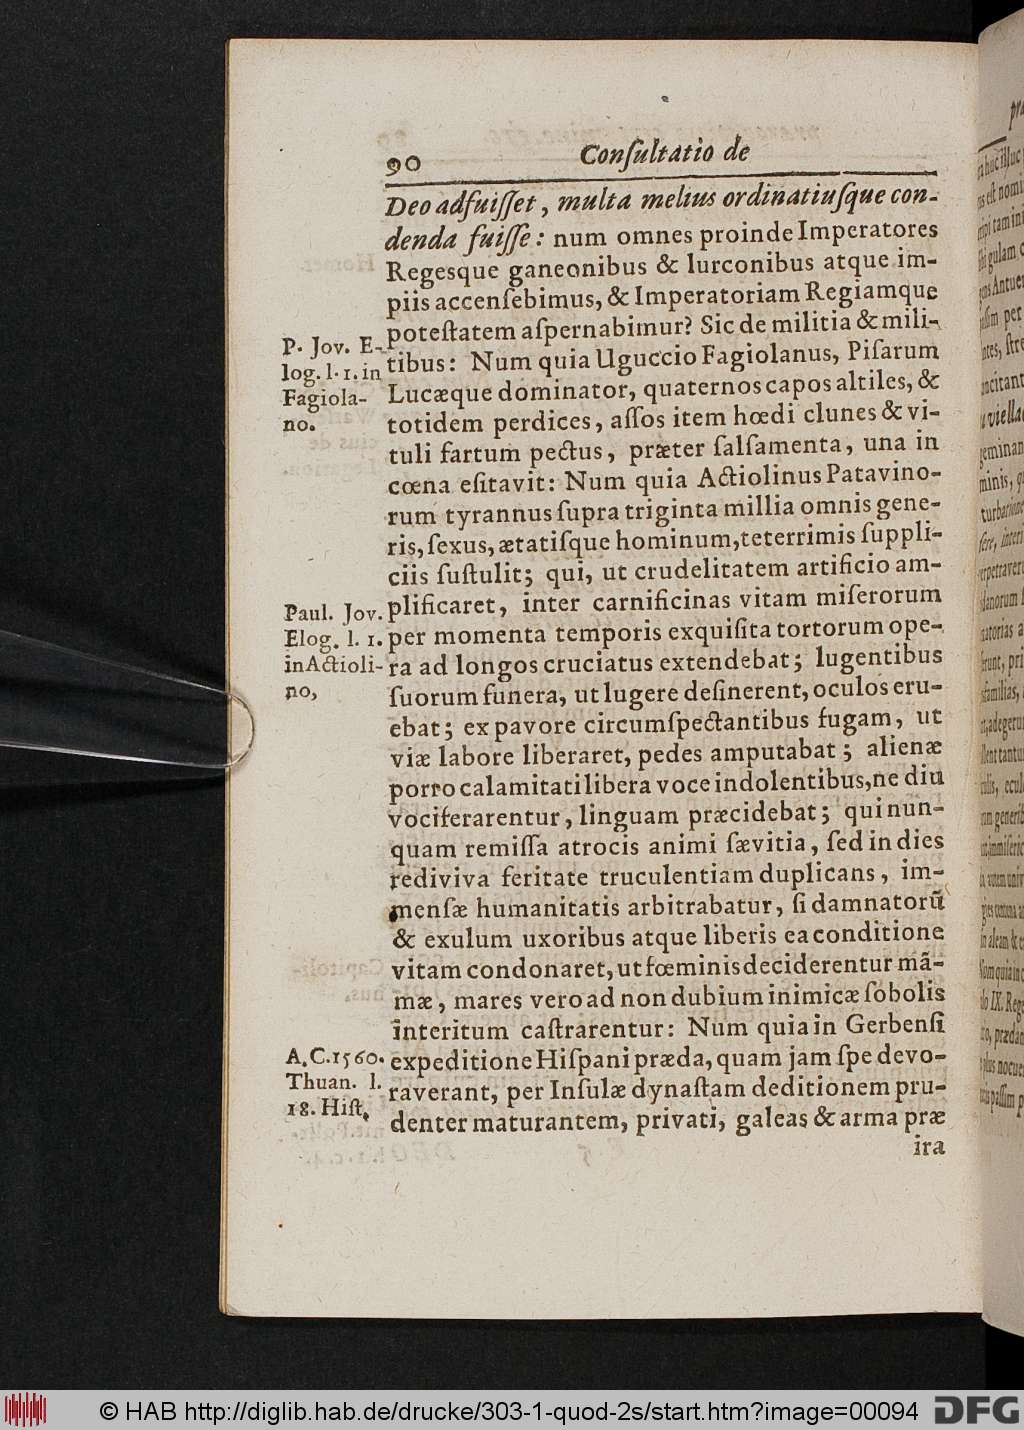 90 Conſultatio de
Deo adfuiſſet, multa melius ordinatiuſque con-
denda fuiſſe: num omnes proinde Imperatores
Regesque ganeonibus & lurconibus atque im-
piis accenſebimus, & Imperatoriam Regiamque
poteſtatem aſpernabimur? Sic de militia & mili-
tibus: Num quia Uguccio Fagiolanus, Piſarum
Lucæque dominator, quaternos capos altiles, &
totidem perdices, aſſos item hœdi clunes & vi-
tuli fartum pectus, præter ſalſamenta, una in
cœna eſitavit: Num quia Actiolinus Patavino-
rum tyrannus ſupra triginta millia omnis gene-
ris, ſexus, ætatiſque hominum, teterrimis ſuppli-
ciis ſuſtulit; qui, ut crudelitatem artificio am-
plificaret, inter carnificinas vitam miſerorum
per momenta temporis exquiſita tortorum ope-
ra ad longos cruciatus extendebat; lugentibus
ſuorum funera, ut lugere deſinerent, oculos eru-
ebat; ex pavore circumſpectantibus fugam, ut
viæ labore liberaret, pedes amputabat; alienæ
porro calamitati libera voce indolentibus, ne diu
vociferarentur, linguam præcidebat; qui nun-
quam remiſſa atrocis animi ſævitia, ſed in dies
rediviva feritate truculentiam duplicans, im-
menſæ humanitatis arbitrabatur, ſi damnatorũ
& exulum uxoribus atque liberis ea conditione
vitam condonaret, ut fœminis deciderentur mã-
mæ, mares vero ad non dubium inimicæ ſobolis
interitum caſtrarentur: Num quia in Gerbenſi
expeditione Hiſpani præda, quam jam ſpe devo-
raverant, per Inſulæ dynaſtam deditionem pru-
denter maturantem, privati, galeas & arma præ
ira
P. Jov. E-
log. l. 1. in
Fagiola-
no.
Paul. Jov.
Elog. l. 1.
in Actioli-
no,
A. C. 1560.
Thuan. l.
18. Hiſt.
© HAB http://diglib.hab.de/drucke/303-1-quod-2s/start.htm?image=00094
DFG